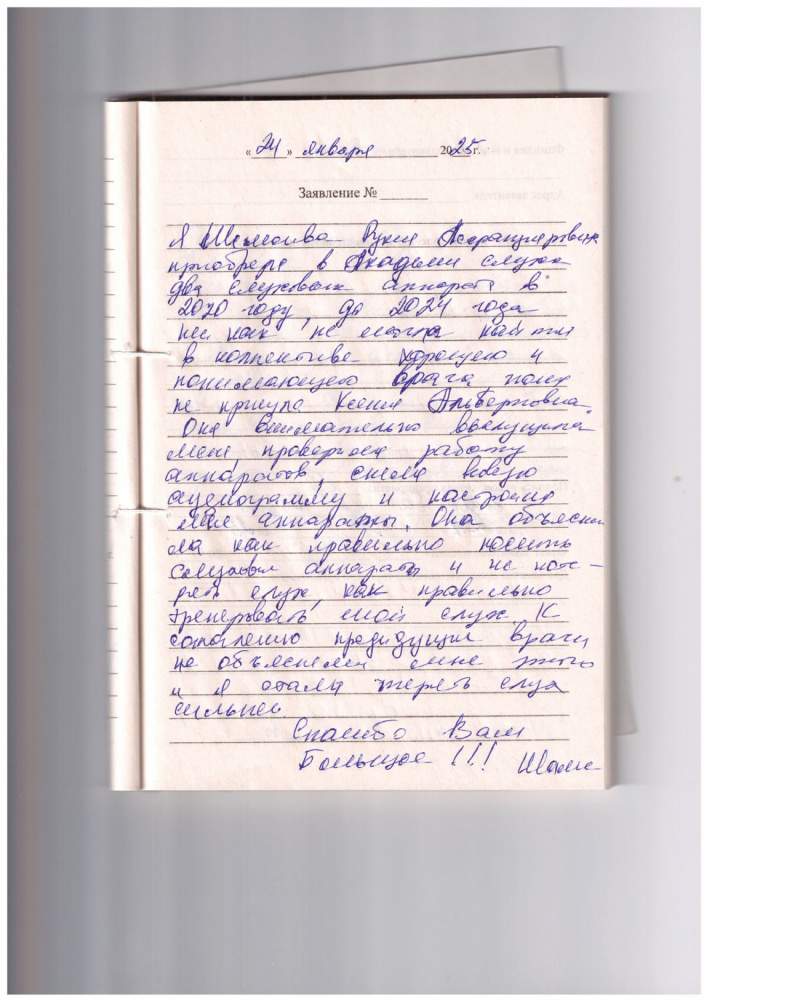 « 24 » января 2025г.
Заявление №
Я Рукия
приобрела в Академии слуха
два слуховых аппарата в
2020 году, до 2024 года
ни как не могла найти
в коллективе хорошего и
понимающего врача пока
не пришла Ксения Альбертовна.
Она внимательно выслушала
меня, проверила работу
аппаратов, сняла новую
аудиограмму и настроила
мои аппараты. Она объясни
ла как правильно носить
слуховые аппараты и не поте-
рять слух, как правильно
тренировать свой слух. К
сожалению предидущие врачи
не объясняли мне этого
и я стала терять слух
сильнее.
Спасибо Вам
Большое !!!